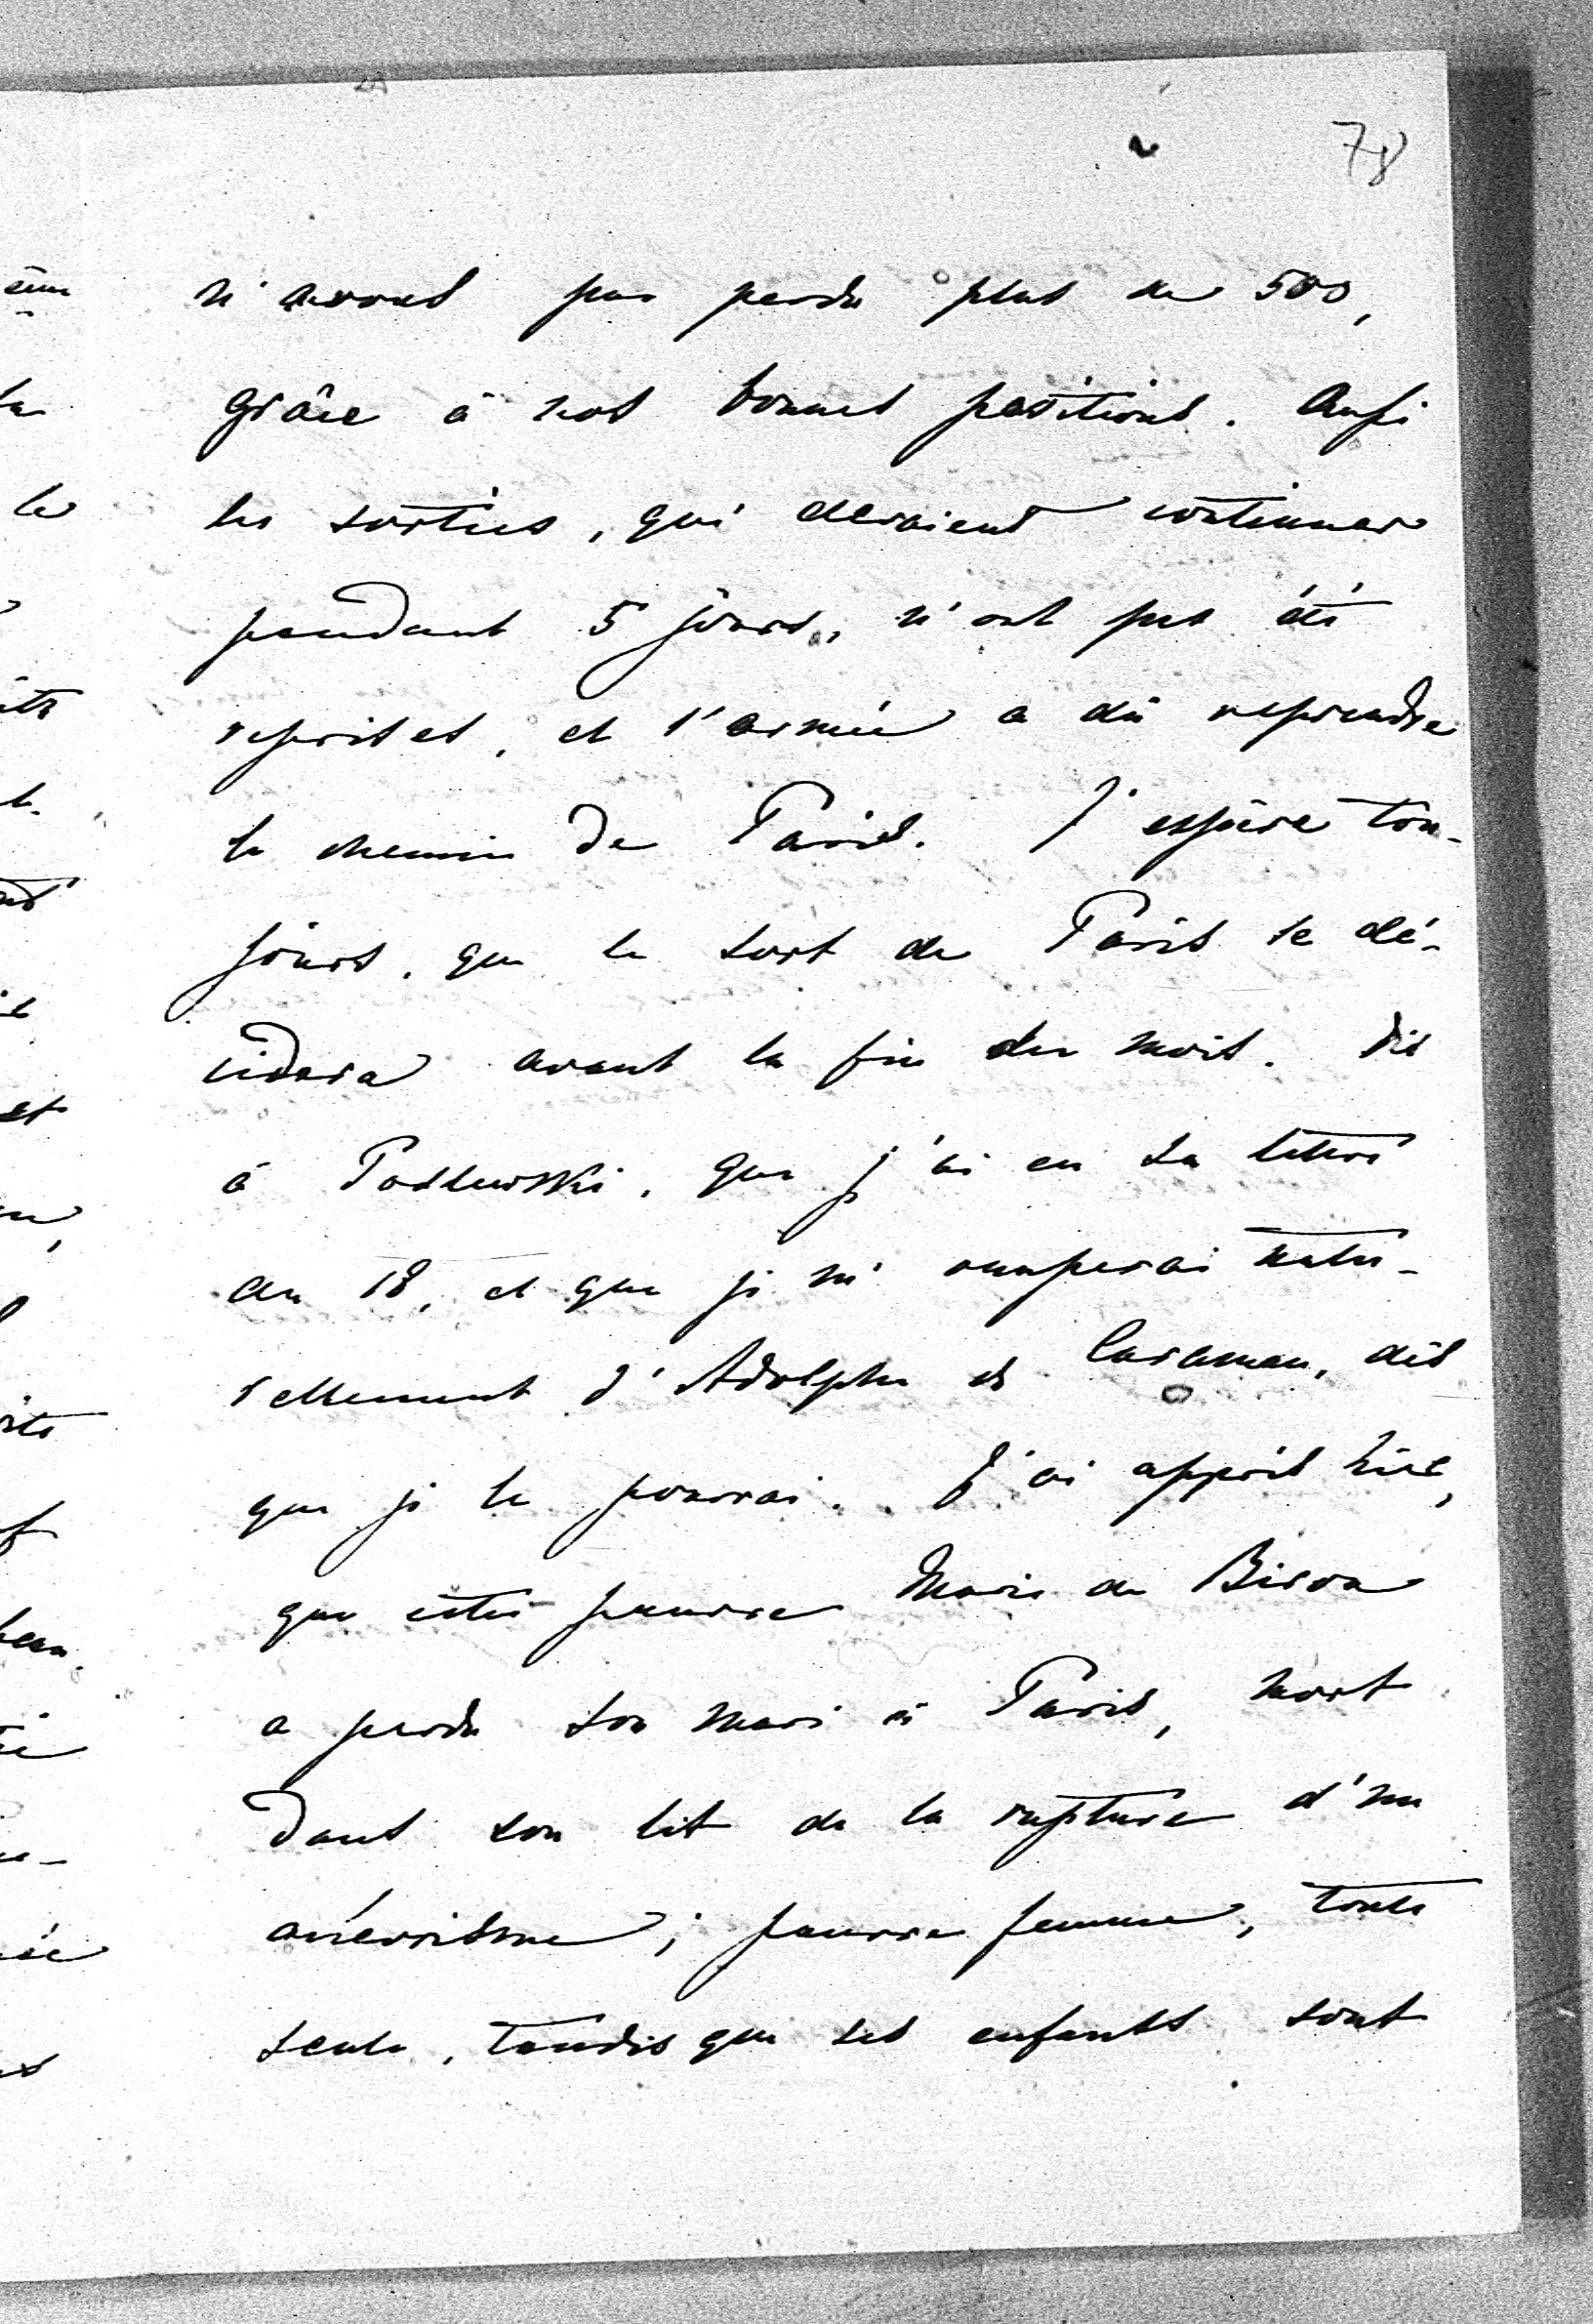 78
n'avons pas perdu plus de 500,
grâce à nos bonnes positions. Aussi
les sorties, qui devaient continuer
pendant 5 jours, n'ont pas été
reprises, et l'armée a dû reprendre
le chemin de Paris. J'espère tou-
jours, que le sort de Paris se dé-
cidera avant la fin du mois. Dis
à Podlewski, que j'ai eu sa lettre
du 18, et que je m'occuperai natu-
rellement d'Adolphe de Caraman, dès
que je le pourrai. J'ai appris hier,
que cette pauvre Marie de Biron
a perdu son mari à Paris, mort
dans son lit de la rupture d'un
anévrisme; pauvre femme, toute
seule, tandis que ses enfants sont